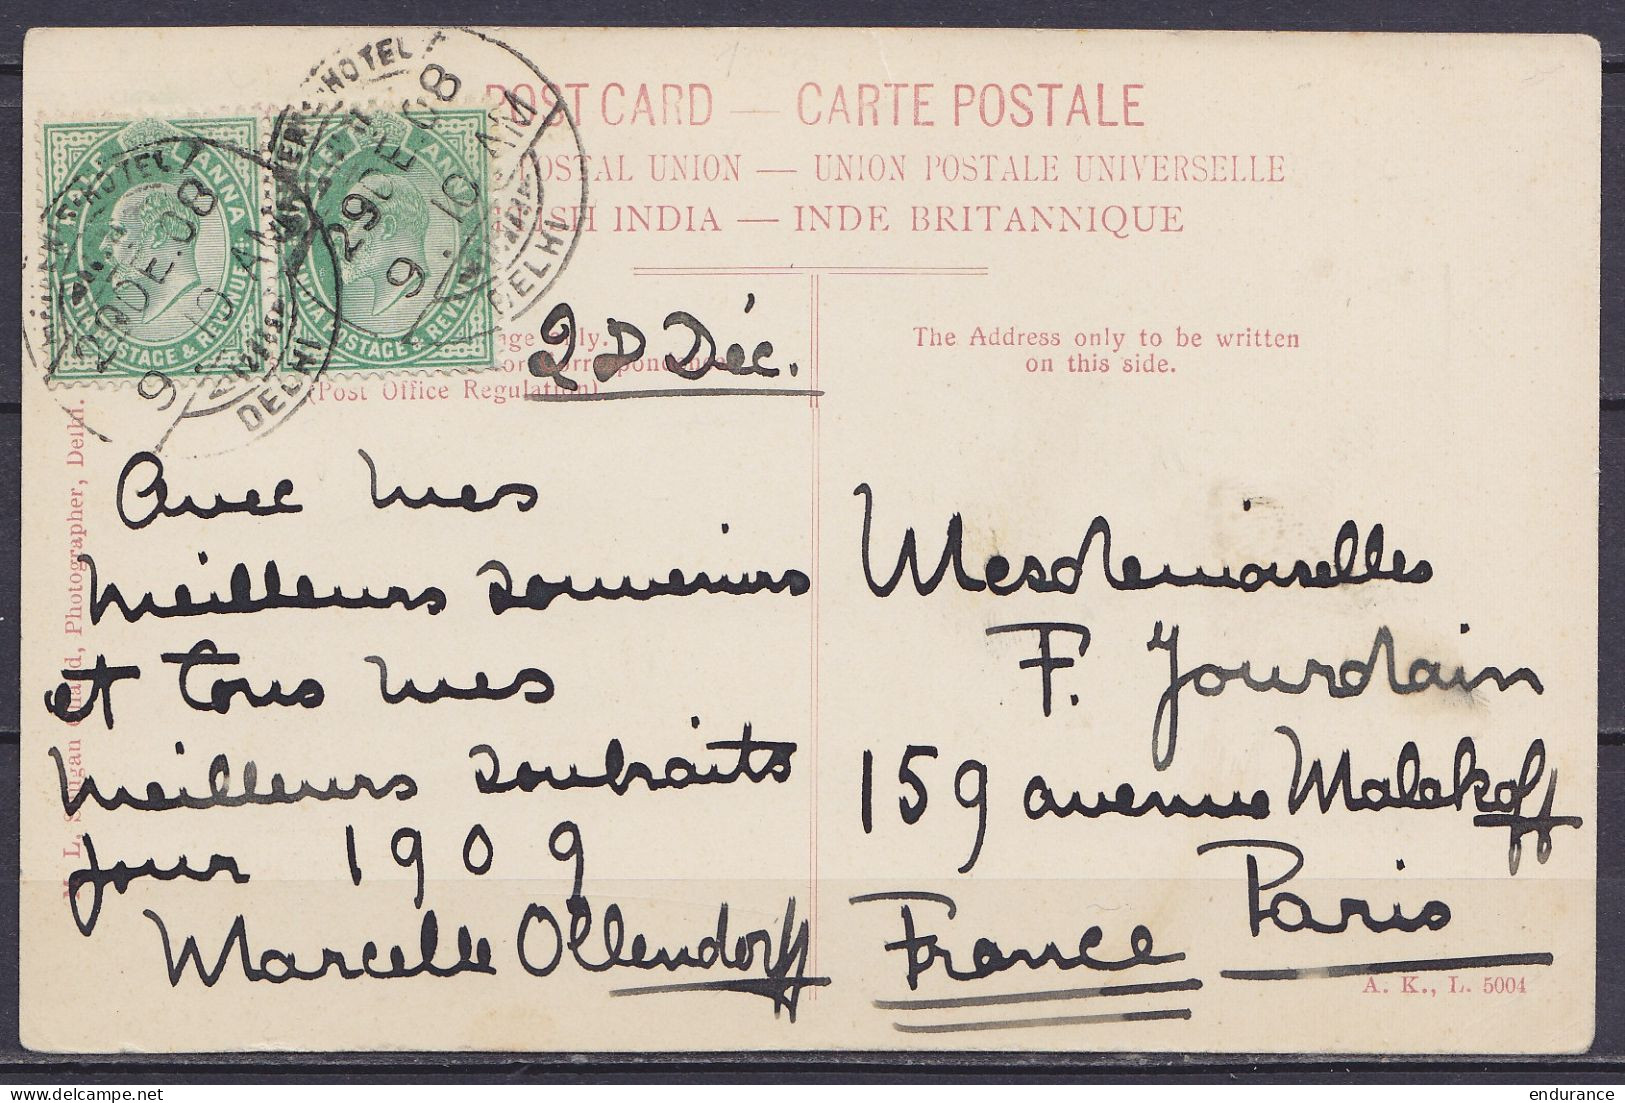 POST CARD — CARTE POSTALE
POSTAL UNION — UNION POSTALE UNIVERSELLE
INDIA — INDE BRITANNIQUE
HALF ANNA
INDIA POSTAGE & REVENUE
POSTAGE & REVENUE
HOTEL
29 DE. 08
9.10 AM
DELHI
HOTEL
29 DE. 08
9.10 AM
DELHI
only.
(Post Office Regulation)
The Address only to be written
on this side.
Déc.
Avec mes
meilleurs souvenirs
et tous mes
meilleurs souhaits
pour 1909
Marcelle Ollendorff
Mesdemoiselles
F. Jourdain
159 avenue Malakoff
Paris
France
Photographer, Delhi.
A. K., L. 5004
endurance